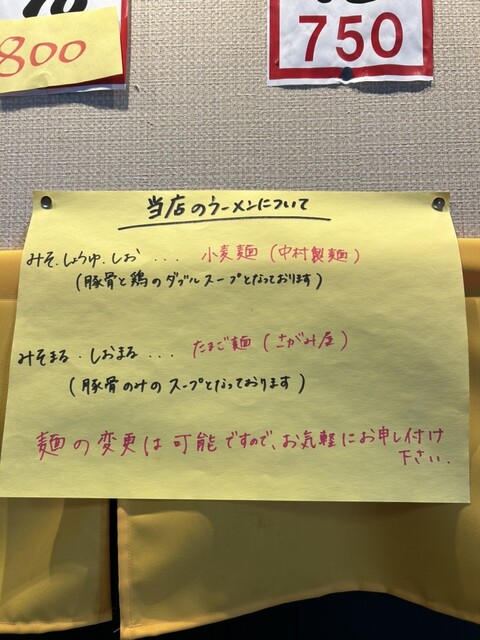 800
750
当店のラーメンについて
みそ.しょうゆ.しお ... 小麦麺 (中村製麺)
(豚骨と鶏のダブルスープとなっております)
みそまる.しおまる ... たまご麺 (さがみ屋)
(豚骨のみのスープとなっております)
麺の変更は可能ですので、お気軽にお申し付け
下さい.